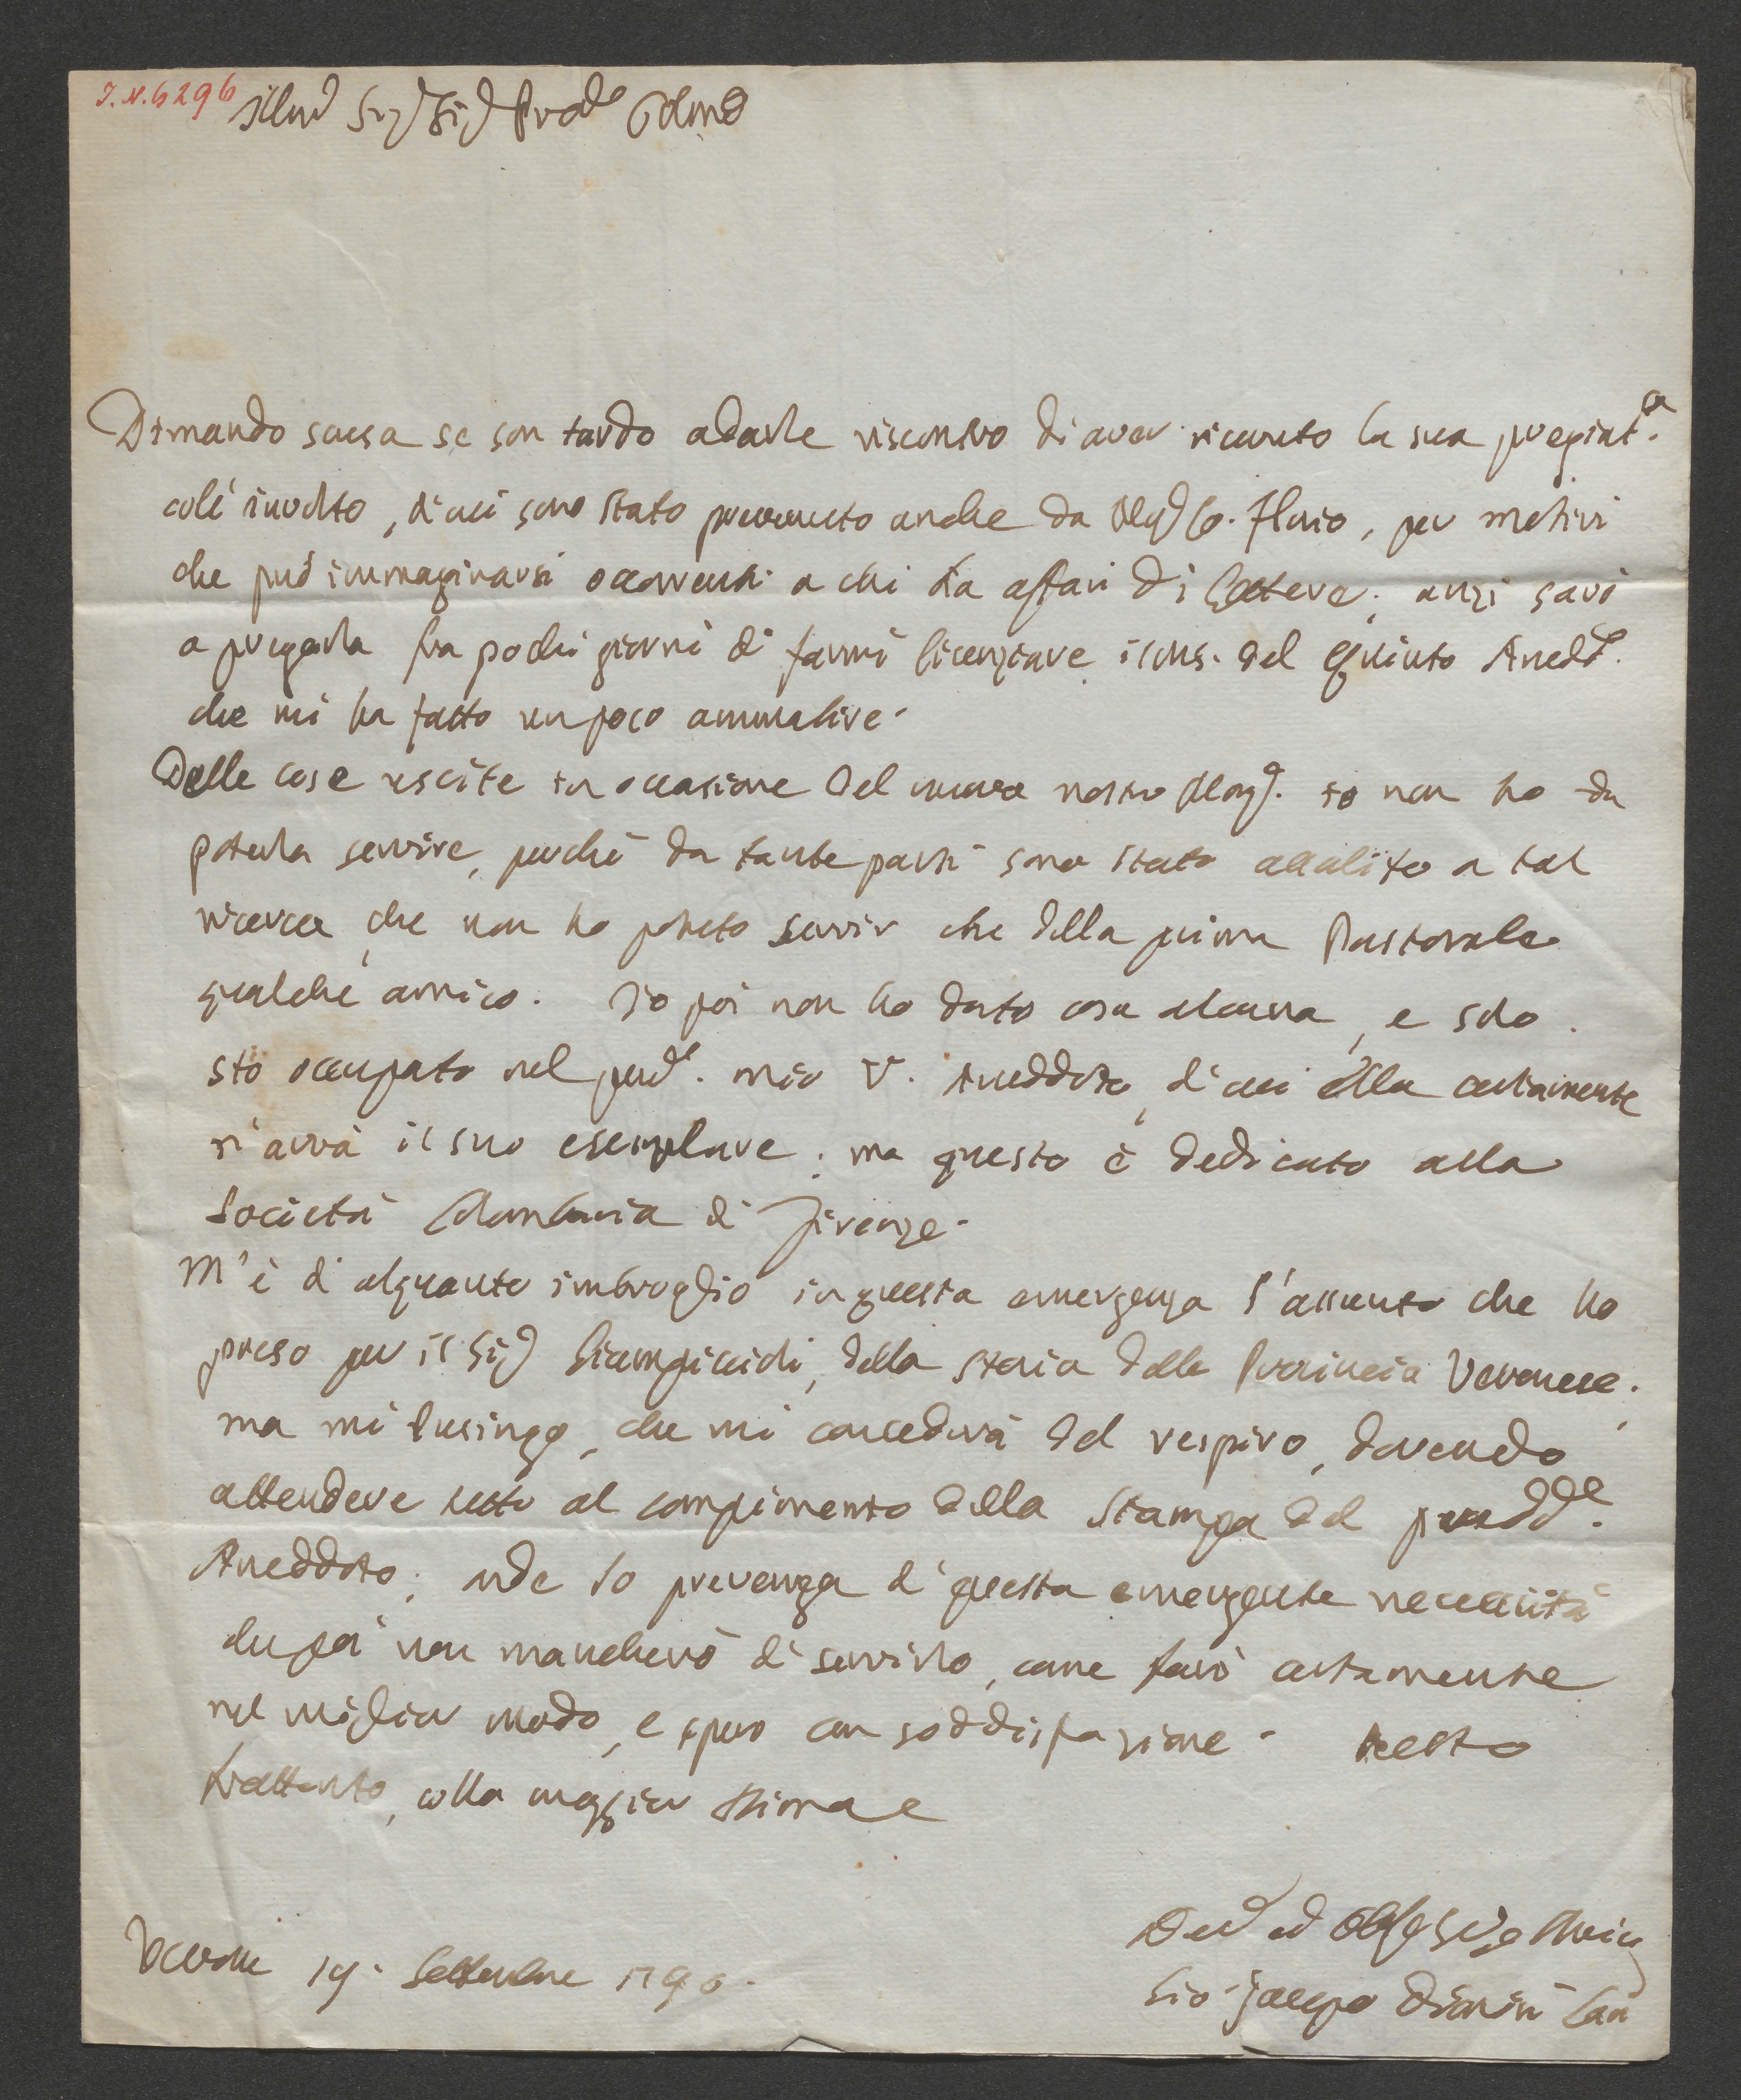 I.N. 6296
Illmo Sig Sig Prde Colmo
Dimando scusa se son tardo a darle riscontro di aver ricevuto la sua pregiat.a
col'involto, di cui sono stato prevenuto anche da Co. Fluio, per motivi
che può immaginarsi occorrenti a chi ha affari di Lettere; anzi sarò
a pregarla fra pochi giorni di farmi licenziare il ms. del Quinto Anedd.
che mi ha fatto un poco ammalire.
Delle cose escite in occasione del nuovo nostro io non ho da
poterla servire, perchè da tante parti sono stato assalito a tal
ricerca, che non ho potuto servir che della prima Pastorale
qualche amico. Io poi non ho dato cosa alcuna, e solo
stò occupato nel pred. mio V. Aneddoto, di cui Ella certamente
n'avrà il suo esemplare; ma questo è dedicato alla
Società Colombaria di Firenze.
M'è di alquanto imbroglio in questa emergenza l'assunto che ho
preso per il Sig Giampiccoli, della storia della Provincia Veronese;
ma mi lusingo, che mi concederà del respiro, dovendo
attendere tutto al compimento della Stampa del predd.e
Aneddoto; onde lo prevenga di questa emergente necessità
che poi non mancherò di servirlo, come farò certamente
nel miglior modo, e spero con soddisfazione. Resto
trattanto, colla maggior stima e
Verona 19. Settembre 1790.
Dev ed Obb
Gio. Jacopo Dionisi Can